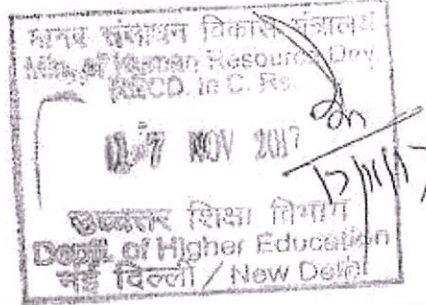 मानव संसाधन विकास मंत्रालय
Min. of Human Resource Dev.
RECD. In C. R.
7 NOV 2017
17/11/17
उच्चतर शिक्षा विभाग
Deptt. of Higher Education
नई दिल्ली / New Delhi